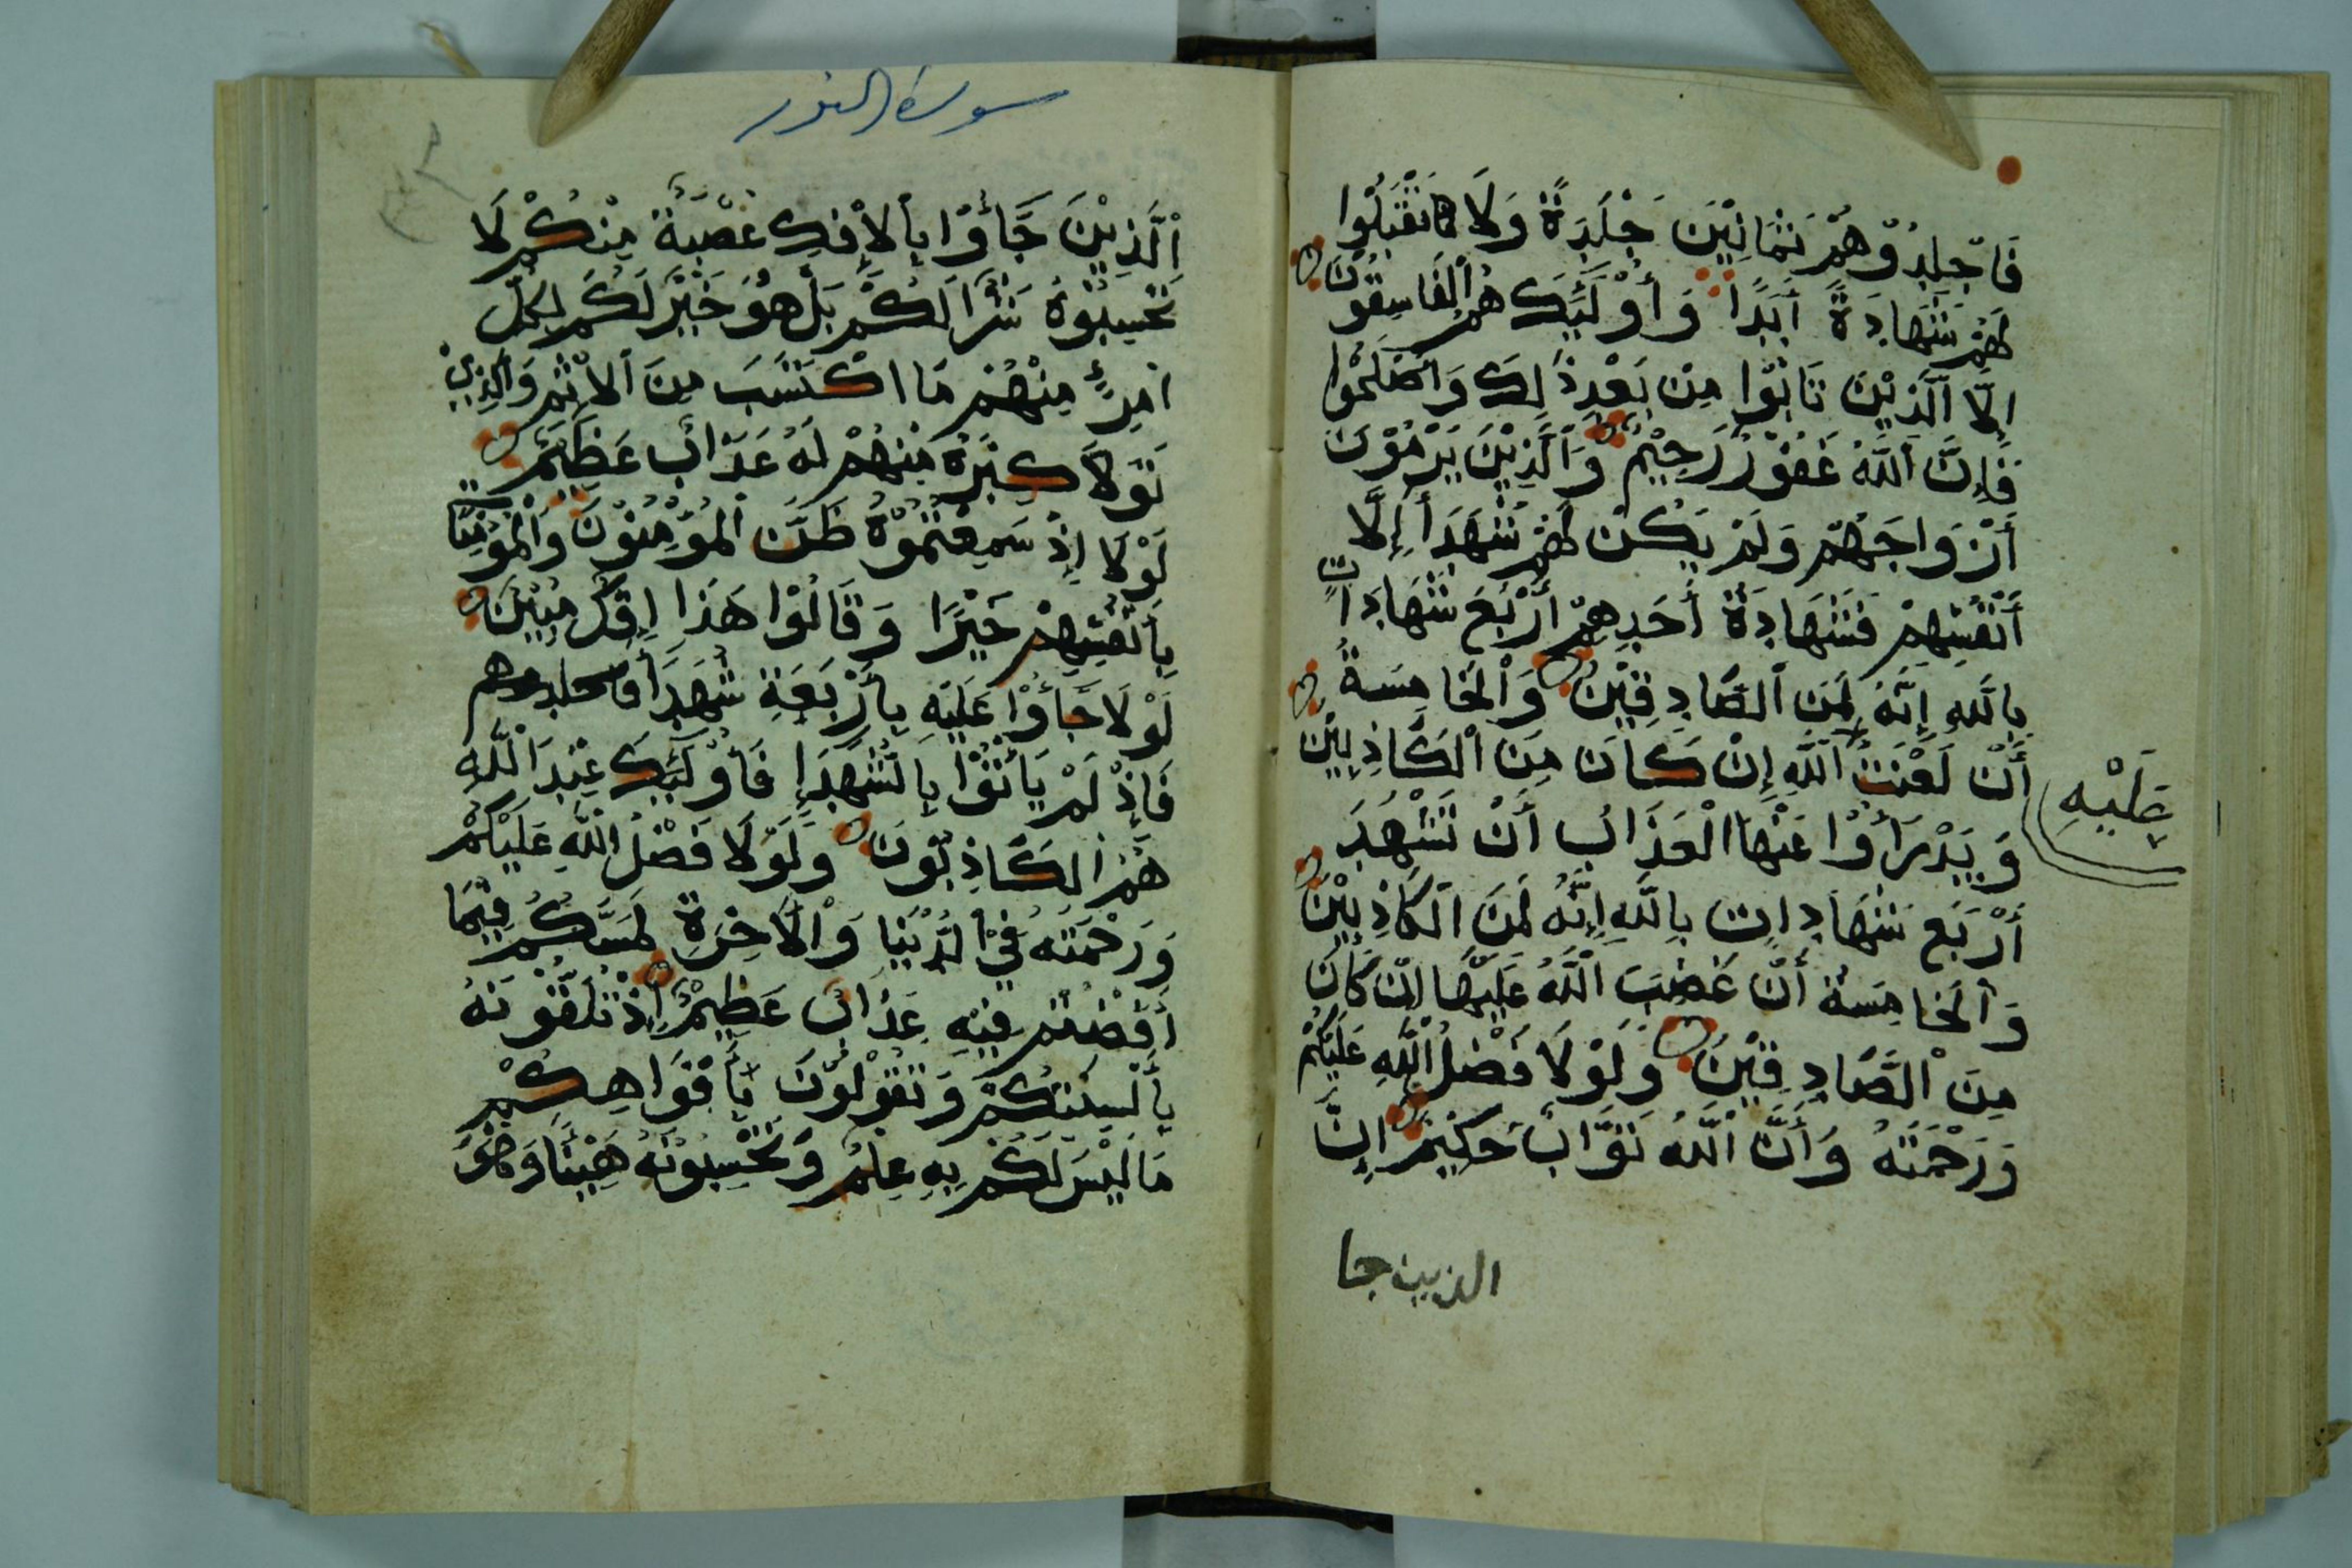 فَاجْلِدُوْهُمْ ثَمَانِيْنَ جَلْدَةً وَلَا تَقْبَلُوْا
لَهُمْ شَهَادَةً أَبَدًا وَأُوْلَئِكَ هُمُ الْفَاسِقُوْنَ
إِلَّا الَّذِيْنَ تَابُوْا مِنْ بَعْدِ ذَلِكَ وَأَصْلَحُوْا
فَإِنَّ اللَّهَ غَفُوْرٌ رَحِيْمٌ وَالَّذِيْنَ يَرْمُوْنَ
أَزْوَاجَهُمْ وَلَمْ يَكُنْ لَهُمْ شُهَدَأُ إِلَّا
أَنْفُسُهُمْ فَشَهَادَةُ أَحَدِهِمْ أَرْبَعُ شَهَادَاتٍ
بِاللَّهِ إِنَّهُ لَمِنَ الصَّادِقِيْنَ وَالْخَامِسَةُ
أَنَّ لَعْنَتَ اللَّهِ عَلَيْهِ إِنْ كَانَ مِنَ الْكَاذِبِيْنَ
وَيَدْرَأُوْا عَنْهَا الْعَذَابَ أَنْ تَشْهَدَ
أَرْبَعَ شَهَادَاتٍ بِاللَّهِ إِنَّهُ لَمِنَ الْكَاذِبِيْنَ
وَالْخَامِسَةُ أَنَّ غَضَبَ اللَّهِ عَلَيْهَا إِنْ كَانَ
مِنَ الصَّادِقِيْنَ وَلَوْلَا فَضْلُ اللَّهِ عَلَيْكُمْ
وَرَحْمَتُهُ وَأَنَّ اللَّهَ تَوَّابٌ حَكِيْمٌ إِنَّ
الذين جا
سورة النور
الَّذِيْنَ جَأُوْا بِالْإِفْكِ عُصْبَةٌ مِنْكُمْ لَا
تَحْسِبُوْهُ شَرًّا لَكُمْ بَلْ هُوَ خَيْرٌ لَكُمْ لِكُلِّ
امْرِئٍ مِنْهُمْ مَا اكْتَسَبَ مِنَ الْإِثْمِ وَالَّذِيْ
تَوَلَّا كِبْرَهُ مِنْهُمْ لَهُ عَذَابٌ عَظِيْمٌ
لَوْلَا إِذْ سَمِعْتُمُوْهُ ظَنَّ الْمُؤْمِنُوْنَ وَالْمُؤْمِنَاتُ
بِأَنْفُسِهِمْ خَيْرًا وَقَالُوْا هَذَا إِفْكٌ مُبِيْنٌ
لَوْلَا جَأُوْا عَلَيْهِ بِأَرْبَعَةِ شُهَدَأَ فاجلدوهم
فَإِذْ لَمْ يَأْتُوْا بِالشُّهَدَإِ فَأُوْلَئِكَ عِنْدَ اللَّهِ
هُمُ الْكَاذِبُوْنَ وَلَوْلَا فَضْلُ اللَّهِ عَلَيْكُمْ
وَرَحْمَتُهُ فِيْ الدُّنْيَا وَالْآخِرَةِ لَمَسَّكُمْ فِيْمَا
أَفَضْتُمْ فِيْهِ عَذَابٌ عَظِيْمٌ إِذْ تَلَقَّوْنَهُ
بِأَلْسِنَتِكُمْ وَتَقُوْلُوْنَ بِأَفْوَاهِكُمْ
مَا لَيْسَ لَكُمْ بِهِ عِلْمٌ وَتَحْسِبُوْنَهُ هَيِّنًا وَهُوَ